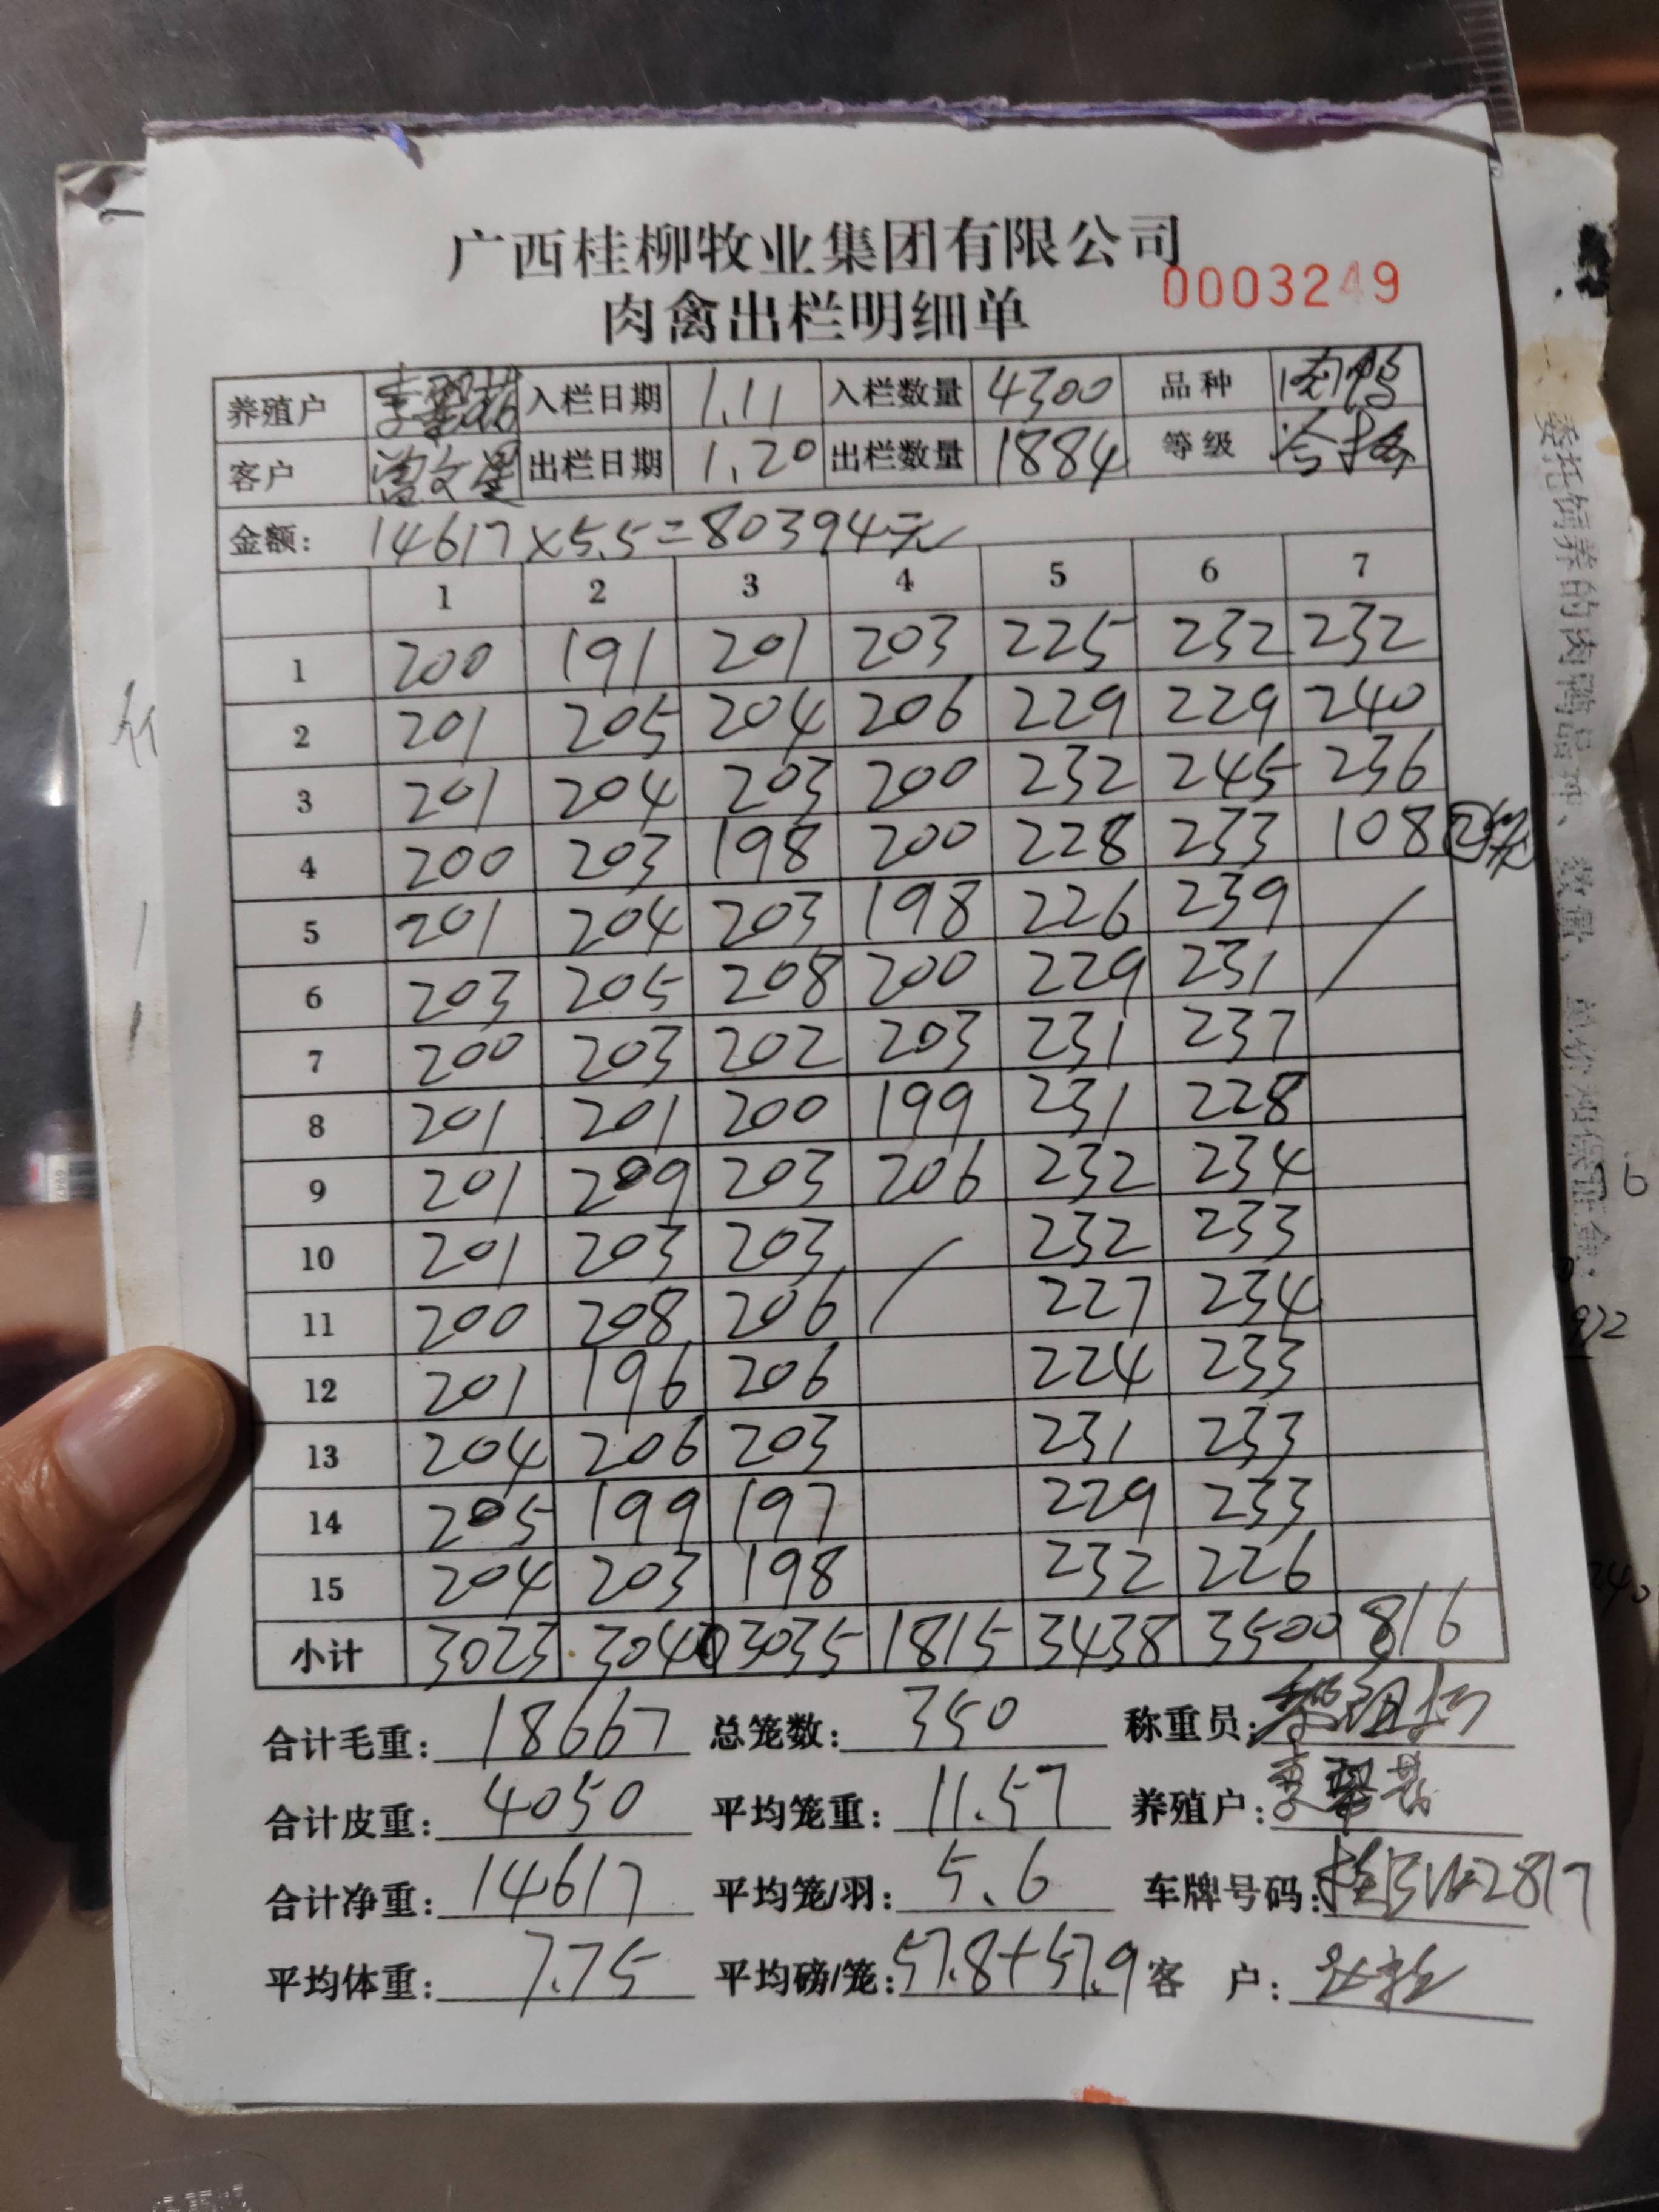 广西桂柳牧业集团有限公司
0003249
肉禽出栏明细单
养殖户 入栏日期 1.11 入栏数量 4300 品种 肉鸭
客户 曾文星 出栏日期 1.20 出栏数量 1884 等级
金额: 14617×5.5=80394元
1 2 3 4 5 6 7
1 200 191 201 203 225 232 232
2 201 205 204 206 229 229 240
3 201 204 203 200 232 245 236
4 200 203 198 200 228 233 108
5 201 204 203 198 226 239
6 203 205 208 200 229 231
7 200 203 202 203 231 237
8 201 201 200 199 231 228
9 201 209 203 206 232 234
10 201 203 203 232 233
11 200 208 206 227 234
12 201 196 206 224 233
13 204 206 203 231 233
14 205 199 197 229 233
15 204 203 198 232 226
小计 3023 3040 3035 1815 3438 3500 816
合计毛重: 18667 总笼数: 350 称重员:
合计皮重: 4050 平均笼重: 11.57 养殖户:
合计净重: 14617 平均笼/羽: 5.6 车牌号码:
平均体重: 7.75 平均磅/笼: 57.8+57.9 客 户:
委托饲养的肉鸭品种、数量、